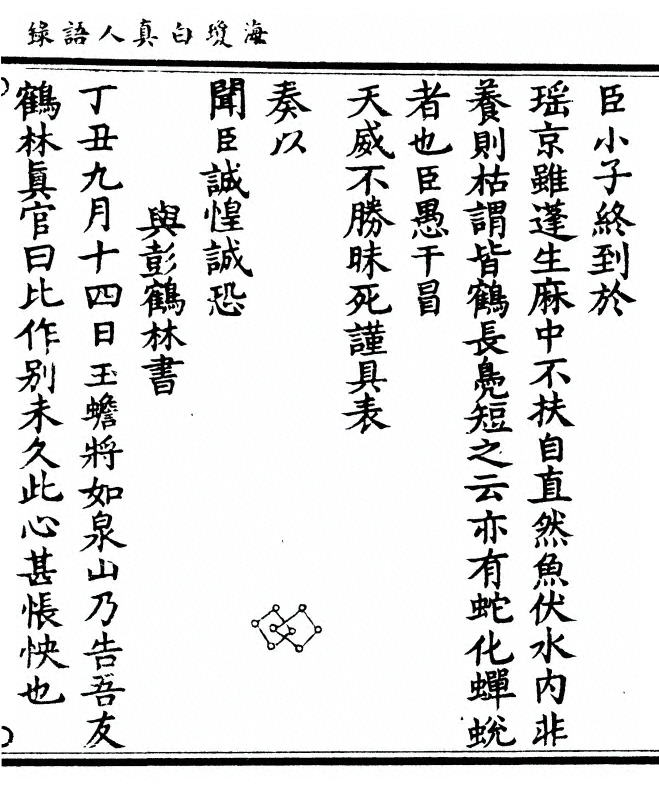 海瓊白真人語錄
臣小子終到於
瑶京雖蓬生麻中不扶自直然魚伏水内非
養則枯謂皆鶴長鳧短之云亦有蛇化蟬蛻
者也臣愚干冒
天威不勝昧死謹具表
奏以
聞臣誠惶誠恐
與彭鶴林書
丁丑九月十四日玉蟾將如泉山乃告吾友
鶴林真官曰比作别未久此心甚悵怏也